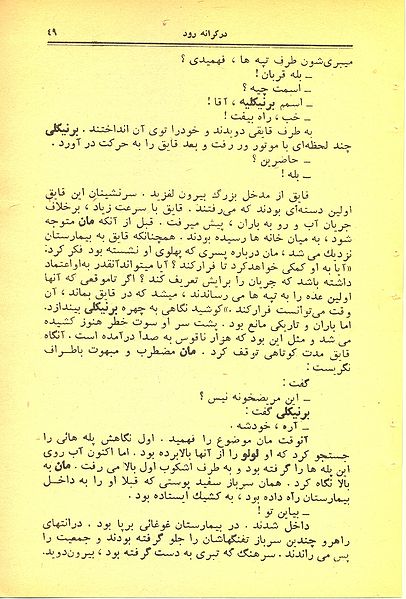 ۴۹ در کرانه رود
میبری‌شون طرف تپه ها ، فهمیدی ؟
ـ بله قربان !
ـ اسمت چیه ؟
ـ اسمم برنیکلیه ، آقا !
ـ خب ، راه بیفت !
به طرف قایقی دویدند و خودرا توی آن انداختند . برنیکلی
چند لحظه‌ای با موتور ور رفت و بعد قایق را به حرکت در آورد .
ـ حاضرین ؟
ـ بله !
قایق از مدخل بزرگ بیرون لغزید . سرنشینان این قایق
اولین دسته‌ای بودند که می‌رفتند . قایق با سرعت زیاد ، برخلاف
جریان آب و رو به باران ، پیش میرفت . قبل از آنکه مان متوجه
شود ، به میان خانه ها رسیده بودند . همچنانکه قایق به بیمارستان
نزدیك می شد ، مان درباره پسری که پهلوی او نشسته بود فکر کرد:
«آیا به او کمکی خواهدکرد تا فرارکند ؟ آیا میتواندآنقدر به‌اواعتماد
داشته باشد که جریان را برایش تعریف کند ؟ اگر تاموقعی که آنها
اولین عده را به تپه ها می رساندند ، میشد که در قایق بماند ، آن
وقت می‌توانست فرارکند .»کوشید نگاهی به چهره برنیکلی بیندازد.
اما باران و تاریکی مانع بود . پشت سر او سوت خطر هنوز کشیده
می شد و مثل این بود که هزار ناقوس به صدا درآمده است . آنگاه
قایق مدت کوتاهی توقف کرد . مان مضطرب و مبهوت باطــراف
نگریست :
گفت :
ـ این مریضخونه نیس ؟
برنیکلی گفت :
ـ آره ، خودشه .
آنوقت مان موضوع را فهمید . اول نگاهش پله هائی را
جستجو کرد که او لولو را از آنها بالابرده بود . اما اکنون آب روی
این پله ها را گرفته بود و به طرف اشکوب اول بالا می رفت . مان به
بالا نگاه کرد . همان سرباز سفید پوستی که قبلا او را به داخــل
بیمارستان راه داده بود ، به کشیك ایستاده بود .
ـ بیاین تو !
داخل شدند . در بیمارستان غوغائی برپا بود . درانتهای
راهرو چندین سرباز تفنگهاشان را جلو گرفته بودند و جمعیت را
پس می راندند . سرهنگ که تبری به دست گرفته بود ، بیرون‌دوید.